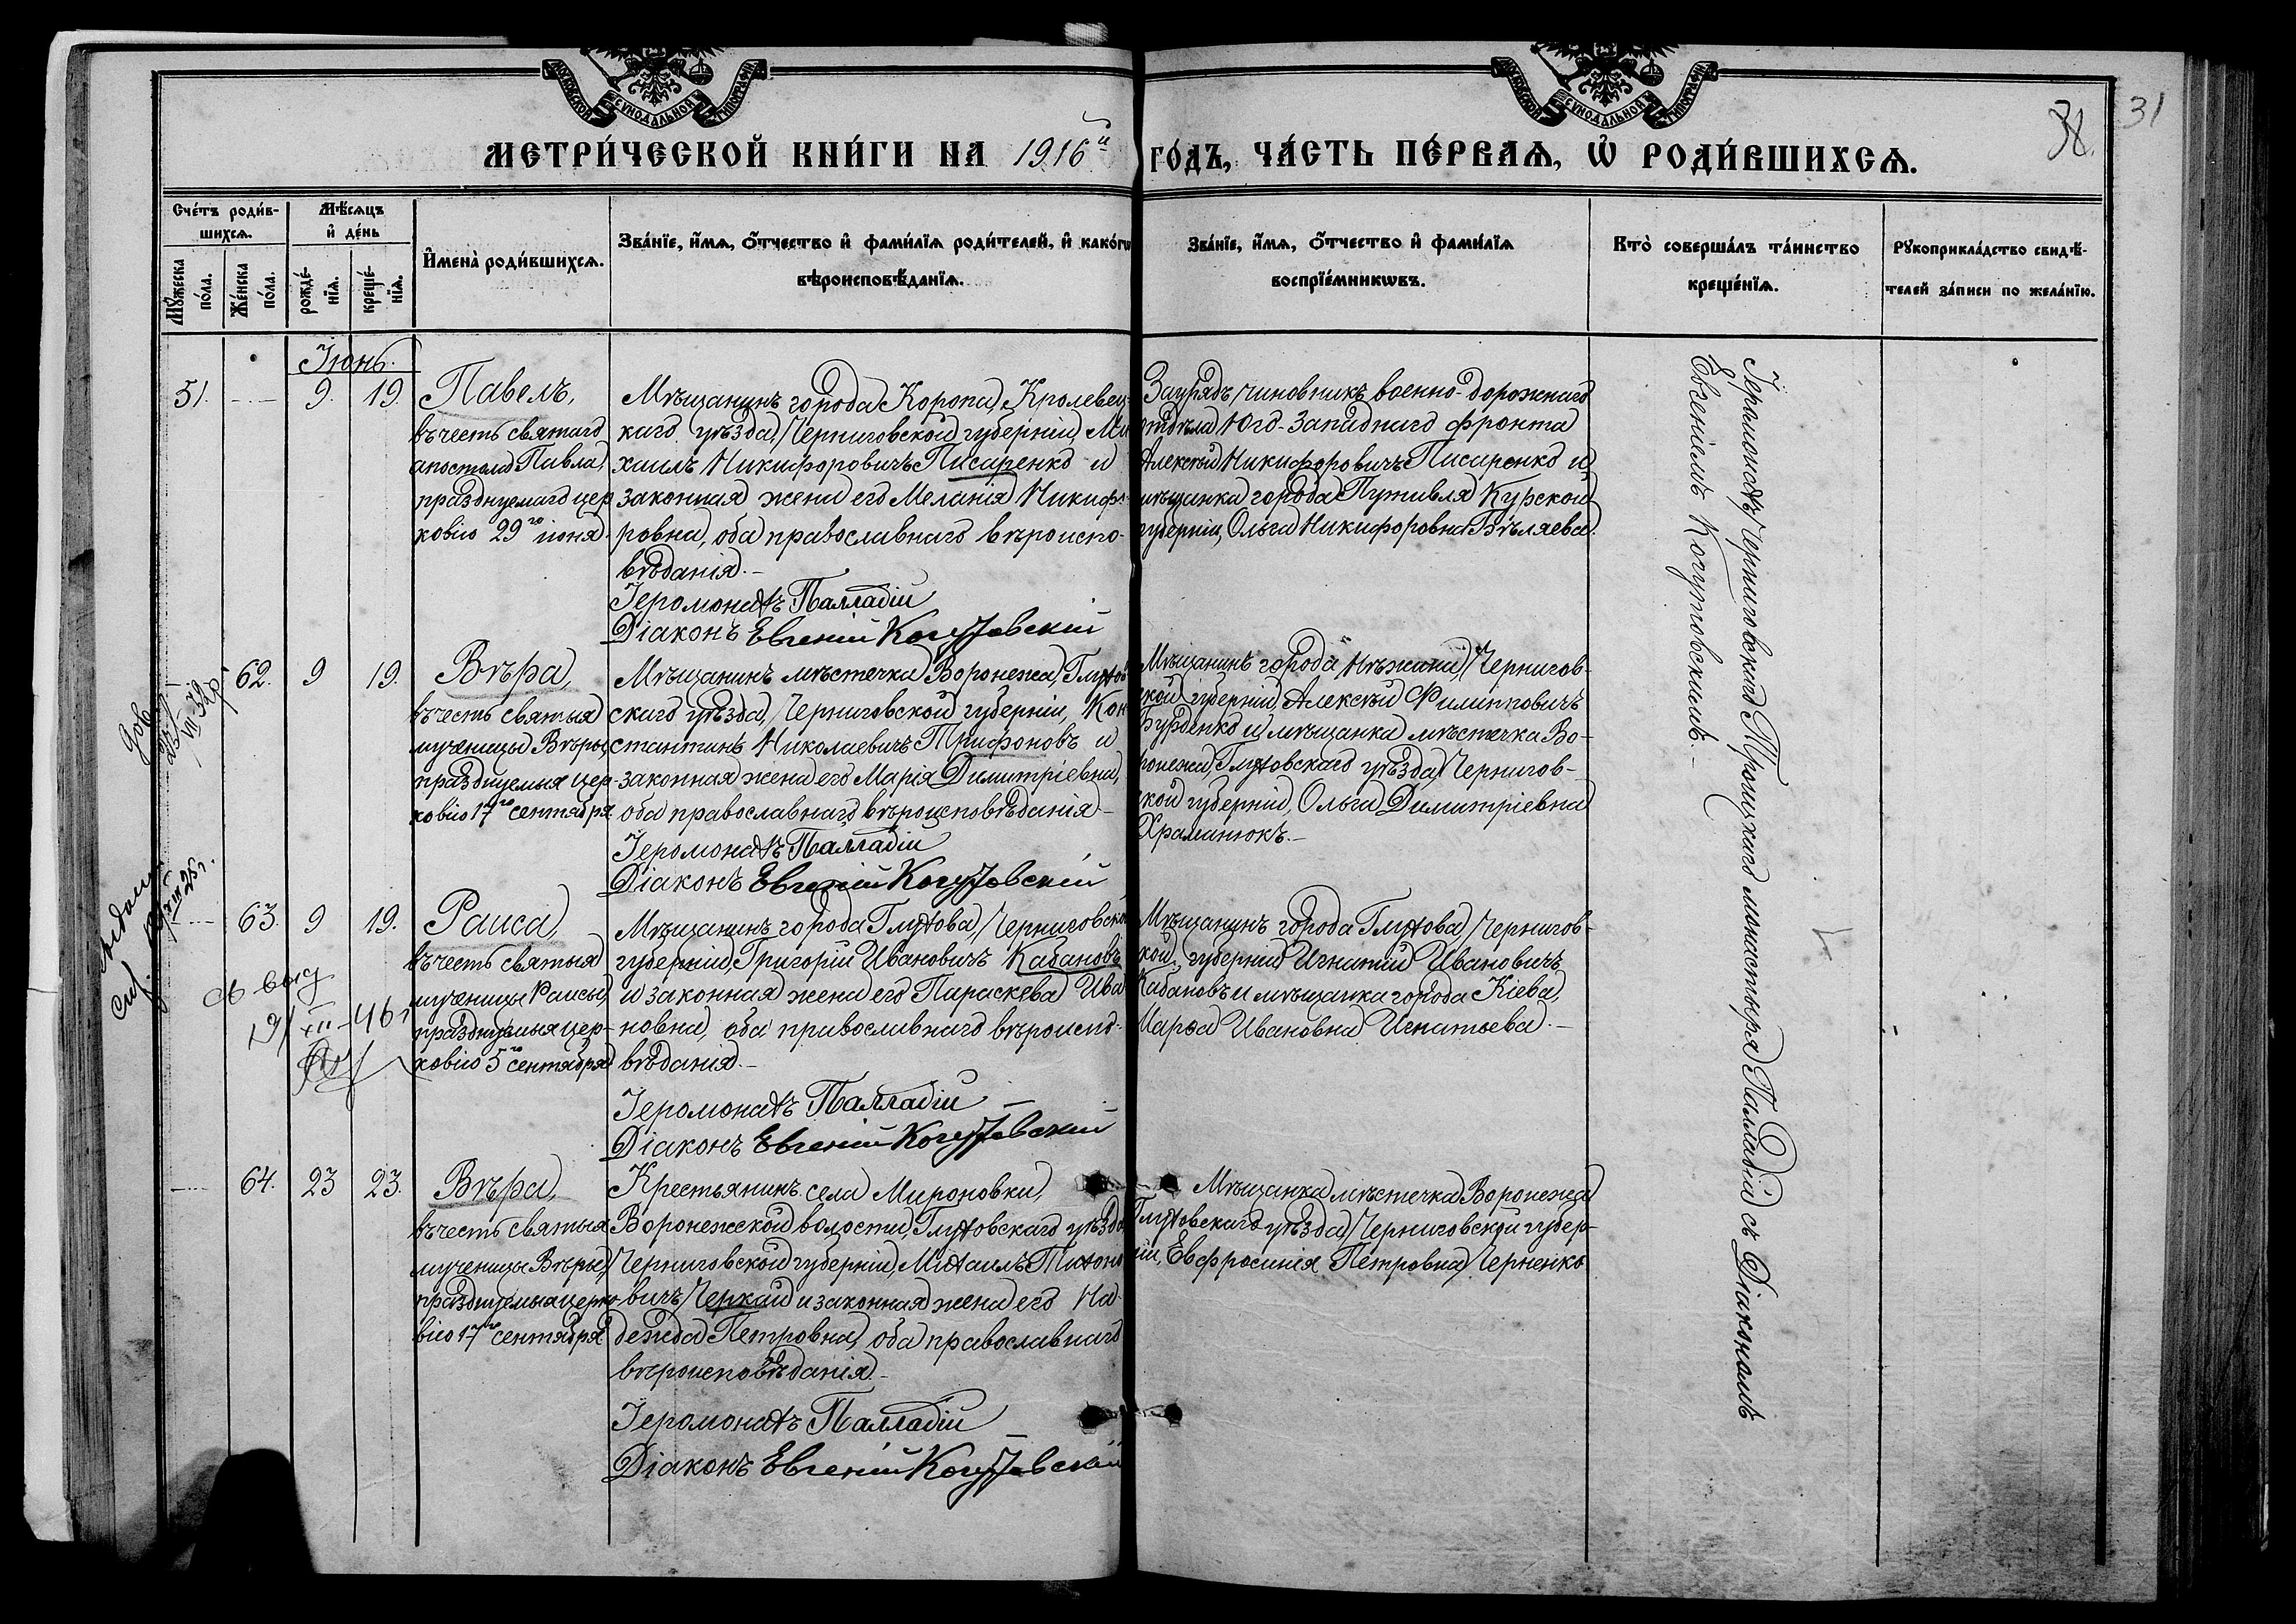 МОСКОВСКОЙ СѴНОДАЛЬНОЙ ТИПОГРАФІИ
МОСКОВСКОЙ СѴНОДАЛЬНОЙ ТИПОГРАФІИ
МЕТРИ́ЧЕСКОЙ КНИ́ГИ НА 1916й ГО́ДЪ, ЧА́СТЬ ПЕ́РВАѦ, Ѡ҆ РОДИ́ВШИХСѦ.
31
Сче́тъ роди́в-
шихсѧ.
Мꙋ́жеска
по́ла.
Же́нска
по́ла.
Мѣ́сѧцъ
и҆ де́нь
рожде́-
нїѧ.
креще́-
нїѧ.
И҆мена̀ роди́вшихсѧ.
Зва́нїе, и҆́мѧ, ѻ҆́тчество и҆ фами́лїѧ роди́телей, и҆ како́гѡ
вѣроисповѣ́данїѧ.
Зва́нїе, и҆́мѧ, ѻ҆́тчество и҆ фами́лїѧ
воспрїе́мникѡвъ.
Кто̀ соверша́лъ та́инство
креще́нїѧ.
Рꙋкоприкла́дство свидѣ́-
телей за́писи по жела́нїю.
Іюнь.
51. 9. 19. Павелъ,
въ честь святаго
апостола Павла,
празднуемаго цер
ковію 29го іюня.
Мѣщанинъ города Коропа, Кролевец-
каго уѣзда, Черниговской губерніи, Ми
хаилъ Никифоровичъ Писаренко и
законная жена его Меланія Никифо-
ровна, оба православнаго вѣроиспо-
вѣданія.-
Іеромонахъ Палладій
Діаконъ Евгеній Когутовскій
Заурядъ чиновникъ военно-дорожнаго
отдѣла Юго-Западнаго фронта
Алексѣй Никифоровичъ Писаренко и
мѣщанка города Путивля Курской
губерніи, Ольга Никифоровна Бѣляева.
62. 9 19. Вѣра,
въ честь святыя
мученицы Вѣры,
празднуемыя цер-
ковію 17го сентября
Мѣщанинъ мѣстечка Воронежа, Глухов
скаго уѣзда, Черниговской губерніи, Кон
стантинъ Николаевичъ Трифоновъ и
законная жена его Марія Димитріевна,
оба православнаго вѣроисповѣданія-
Іеромонахъ Палладій
Діаконъ Евгеній Когутовскій
Мѣщанинъ города Нѣжина, Чернигов-
ской губерніи, Алексѣй Филипповичъ
Бурденко и мѣщанка мѣстечка Во-
ронежа, Глуховскаго уѣзда, Чернигов-
ской губерніи, Ольга Димитріевна
Храманюкъ.-
63. 9 19. Раиса,
въ честь святыя
мученицы Раисы,
празднуемыя цер-
ковію 5го сентября
Мѣщанинъ города Глухова, Черниговской
губерніи, Григорій Ивановичъ Кабановъ
и законная жена его Параскева Ива
новна, оба православнаго вѣроиспо-
вѣданія.-
Іеромонахъ Палладій
Діаконъ Евгеній Когутовскій
Мѣщанинъ города Глухова, Чернигов-
ской губерніи Игнатій Ивановичъ
Кабановъ и мѣщанка города Кіева,
Марѳа Ивановна Игнатьева.-
64. 23 23. Вѣра,
въ честь святыя
мученицы Вѣры,
празднуемыя церко-
вію 17го сентября
Крестьянинъ села Мироновки,
Воронежской волости, Глуховскаго уѣзда
Черниговской губерніи, Михаилъ Тихоно
вичъ Черкай и законная жена его На-
дежда Петровна, оба православнаго
вѣроисповѣданія.-
Іеромонахъ Палладій
Діаконъ Евгеній Когутовскій
Мѣщанка мѣстечка Воронежа
Глуховскаго уѣзда, Черниговской губер-
ніи, Евфросинія Петровна Черненко
Іеромонахъ Черниговскаго Троицкаго монастыря Палладій съ Діакономъ
Евгеніемъ Когутовскимъ.-